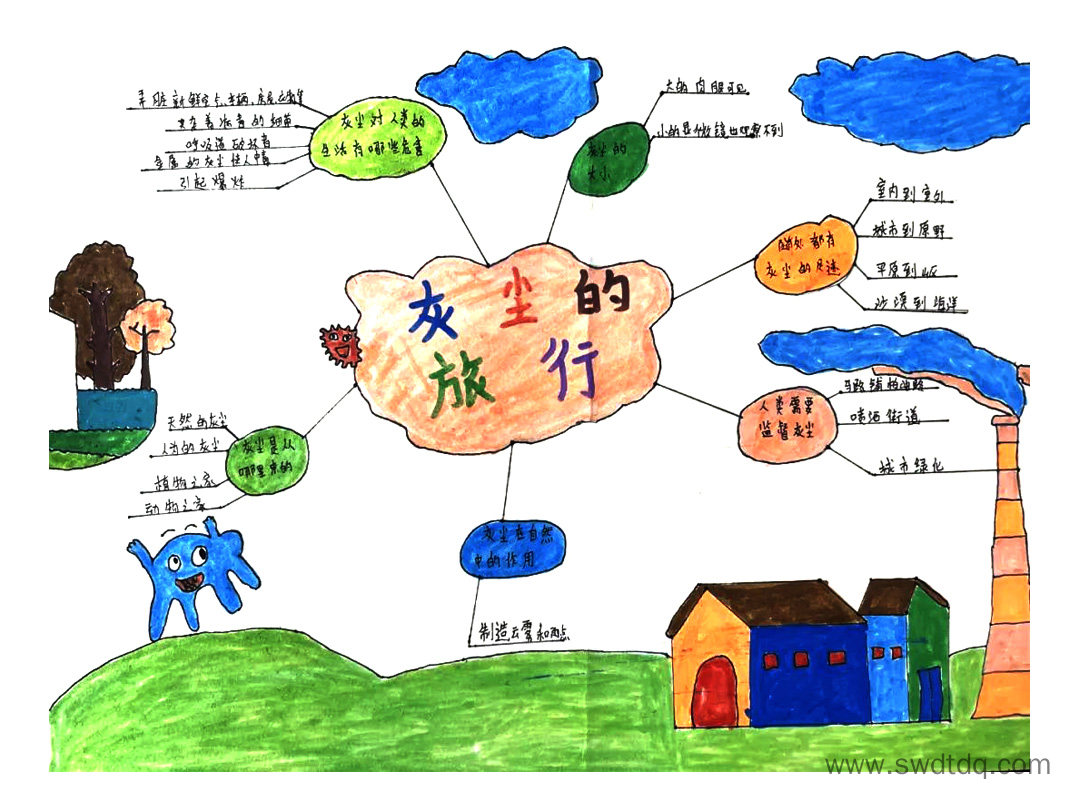 灰尘的
旅行
灰尘对人类的
生活有哪些危害
弄脏新鲜空气、车辆、
夹杂着 病毒的细菌
呼吸道破坏者
金属的灰尘使人中毒
引起爆炸
灰尘的
大小
大的肉眼可见
小的是微镜也观察不到
随处都有
灰尘的足迹
室内到室外
城市到原野
平原到山区
沙漠到海洋
人类需要
监督灰尘
马路铺柏油路
喷洒街道
城市绿化
灰尘在自然
中的作用
制造云雾和雨点
灰尘是从
哪里来的
天然的灰尘
人为的灰尘
植物之家
动物之家
www.swdtdq.com